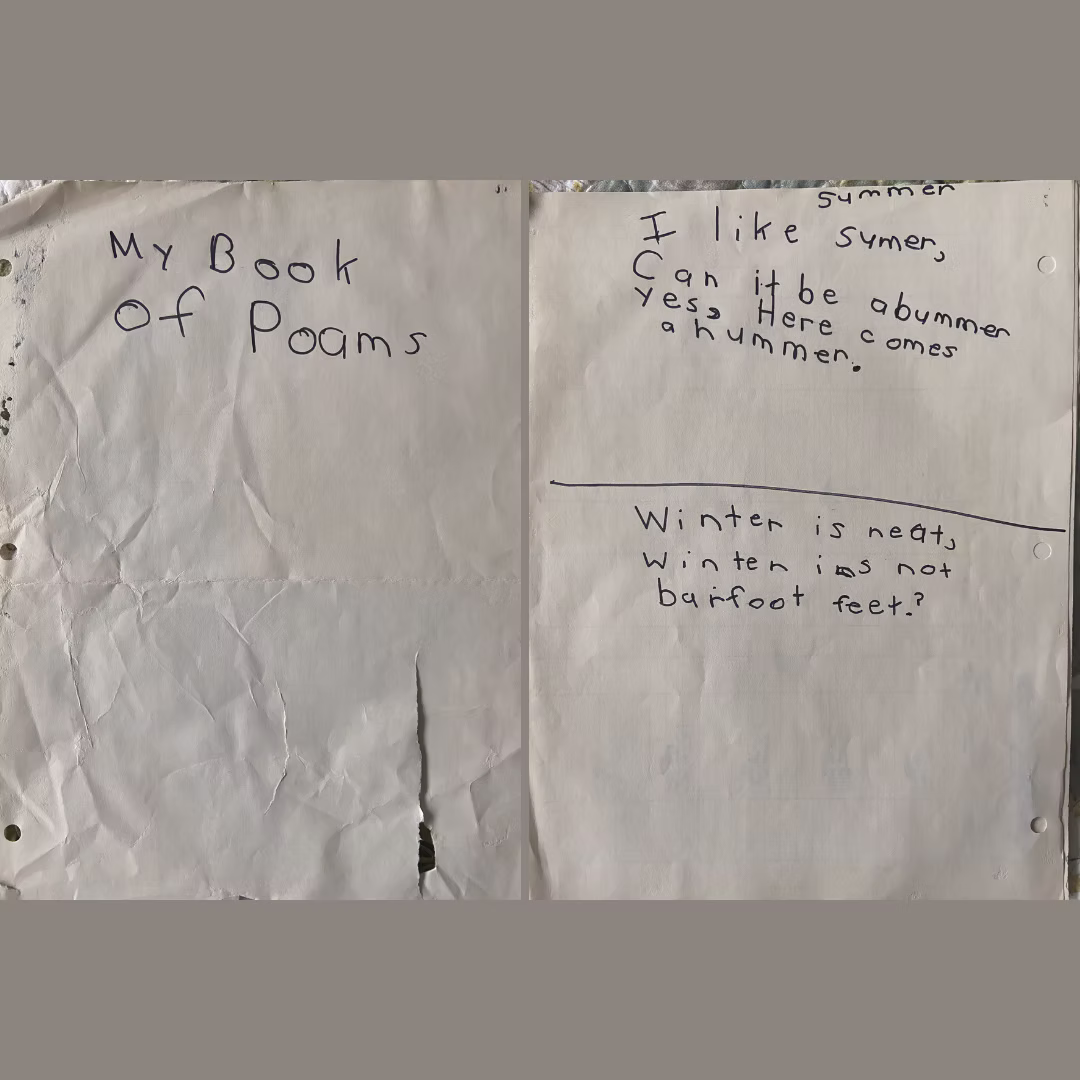 My Book
Of Poams
summer
I like symer,
Can it be abummer
yes, Here comes
a hummer.
Winter is neat,
Winter is not
barfoot feet.?